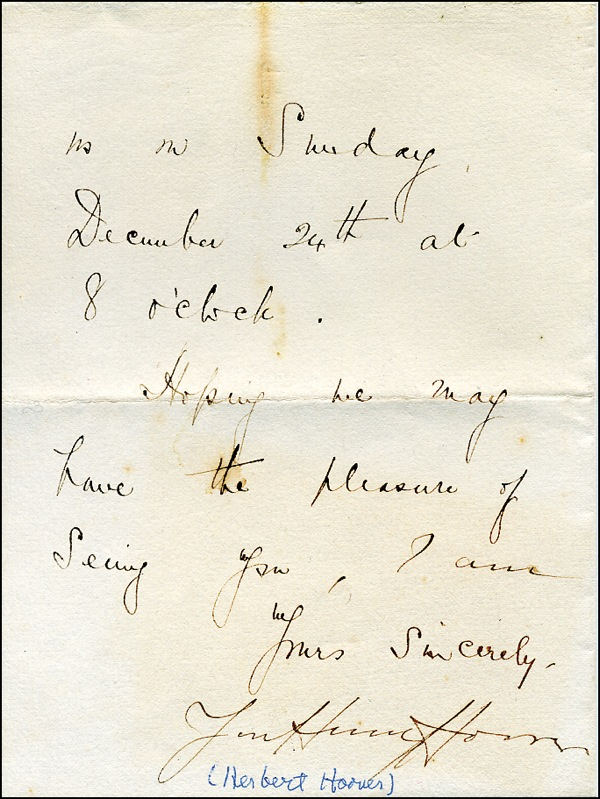 us on Sunday,
December 24th at
8 o'clock.
Hoping we may
have the pleasure of
Seeing you, I am
Yours Sincerely,
Lou Henry Hoover
(Herbert Hoover)